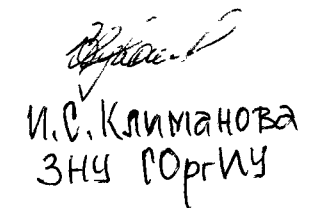 И.С.Климанова
ЗНУ ГОргИУ